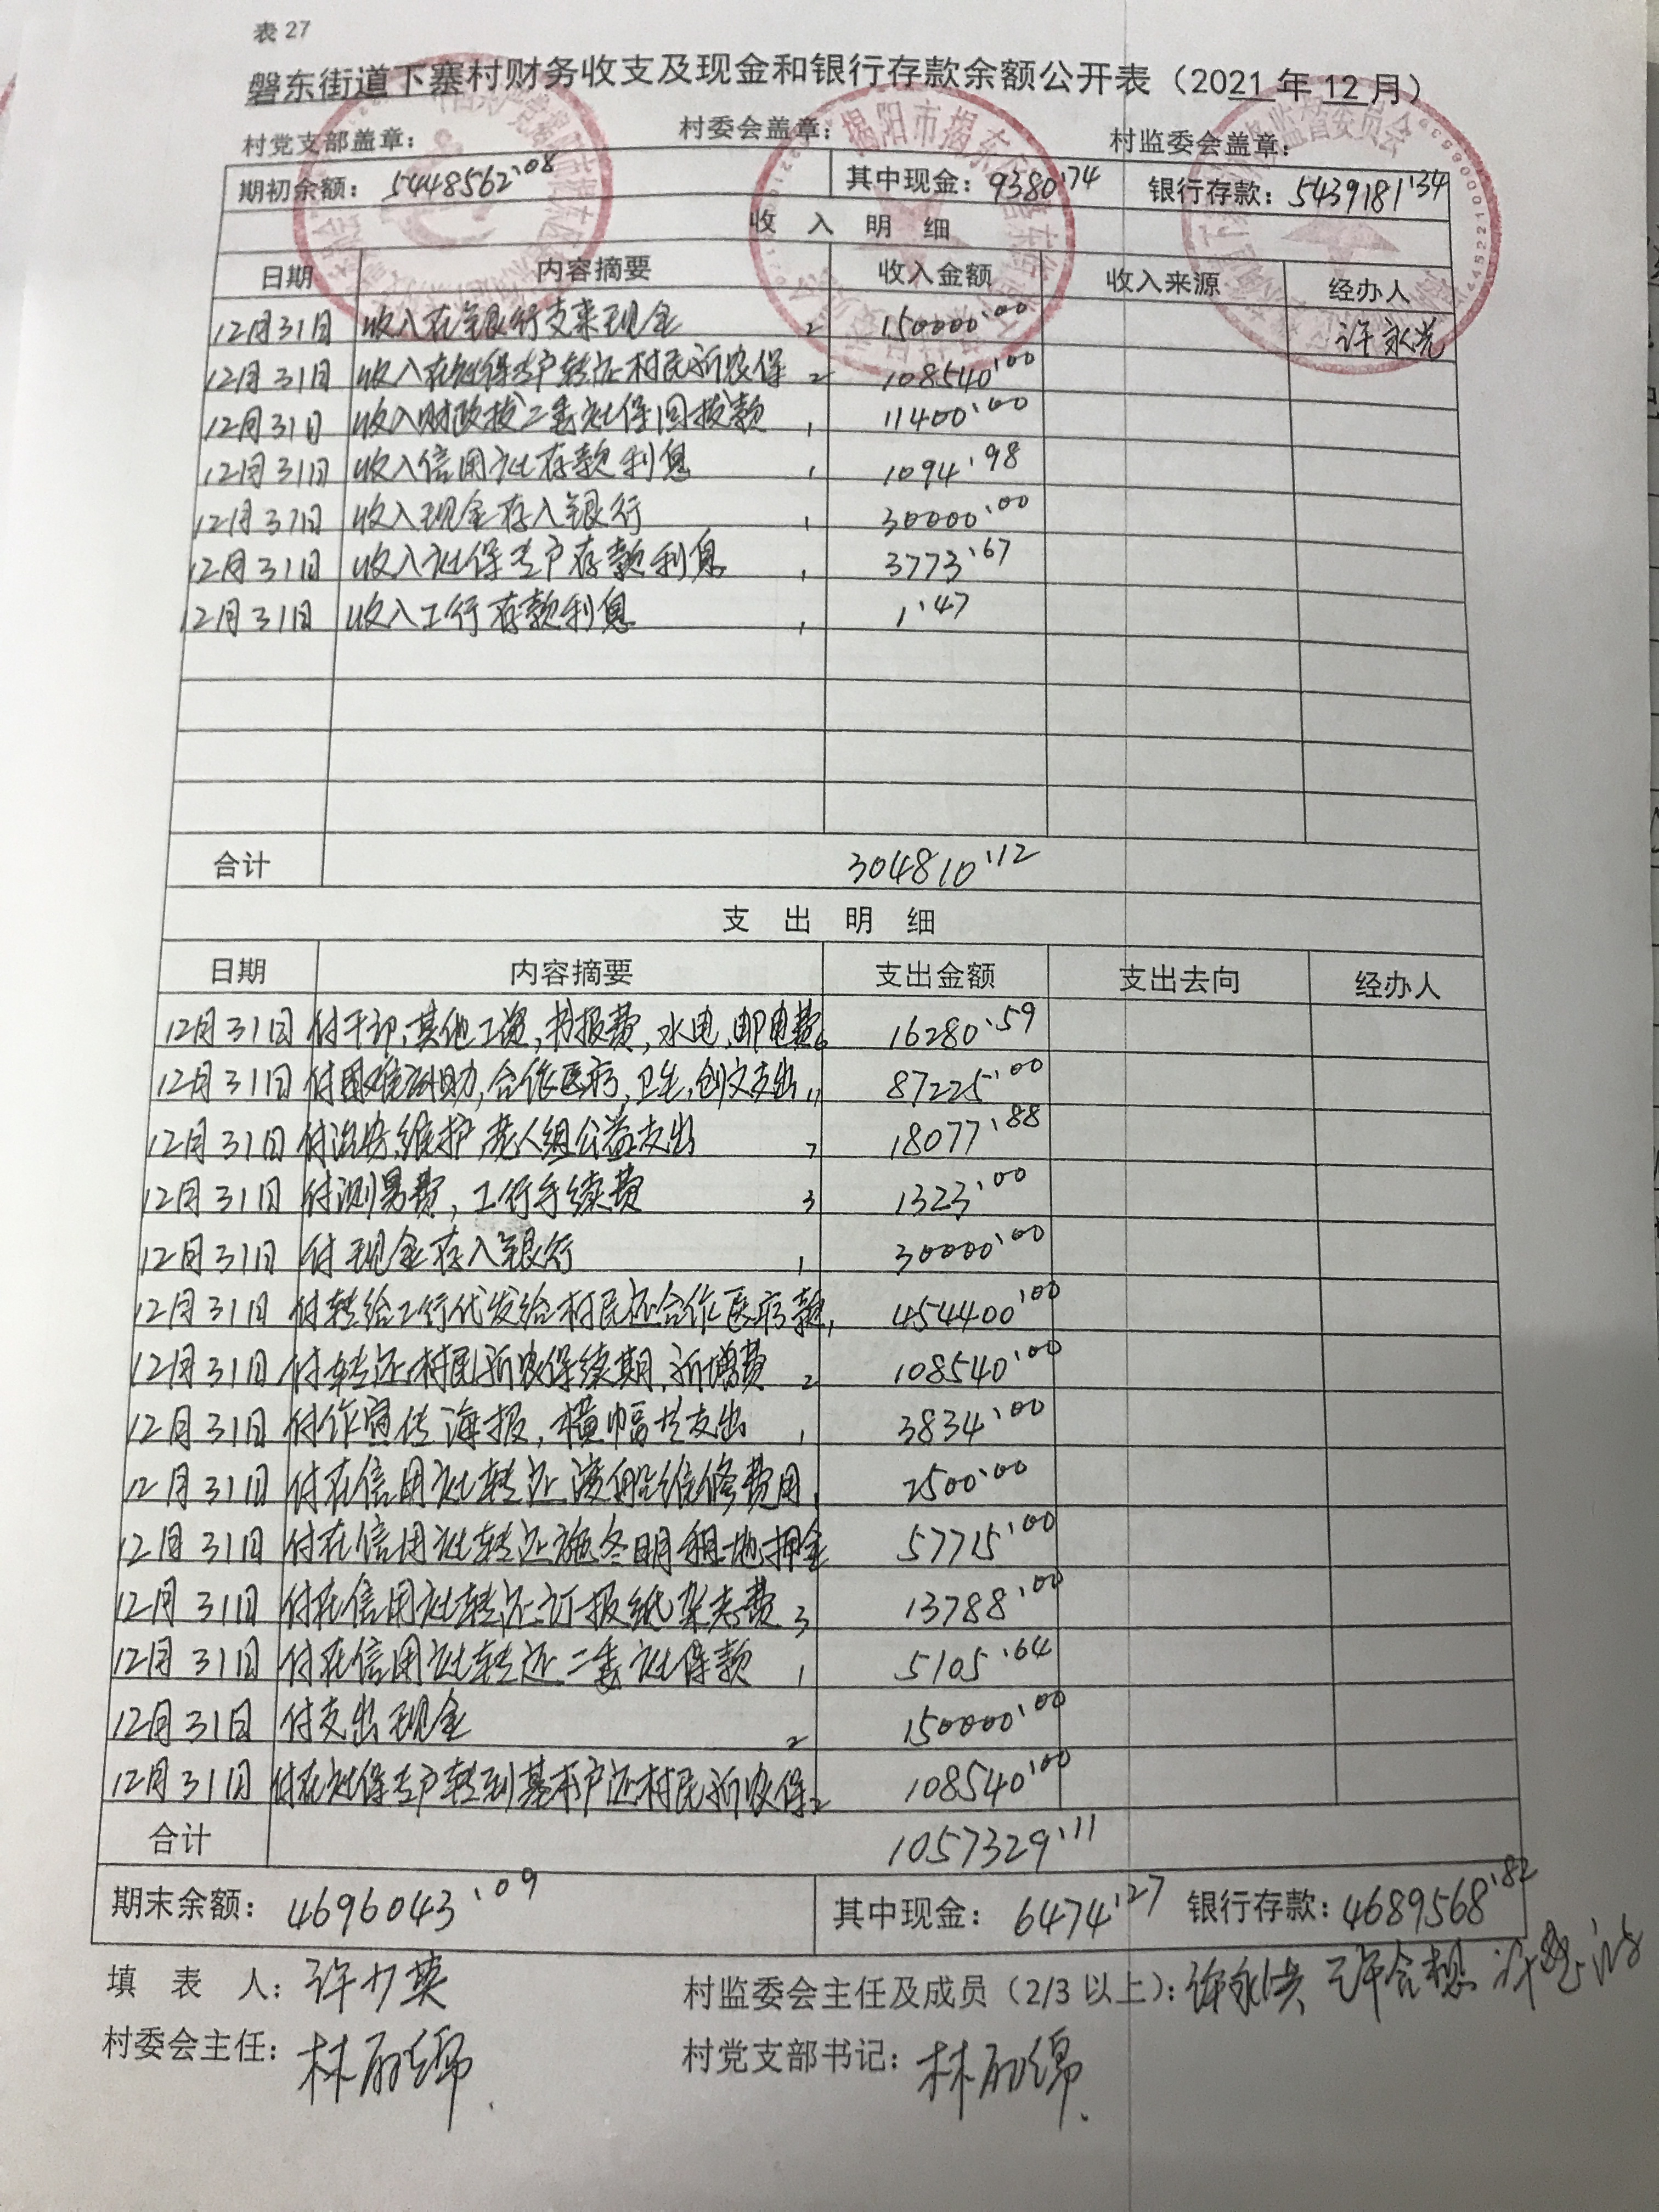 表 27
磐东街道下寨村财务收支及现金和银行存款余额公开表（2021年12月）
村党支部盖章： 村委会盖章： 村监委会盖章：
期初余额： 5448562.08 其中现金：9380.74 银行存款：5439181.34
收 入 明 细
日期 内容摘要 收入金额 收入来源 经办人
12月31日 收入在银行支来现金 2 150000.00 许永洪
12月31日 收入在社保专户转还村民新农保 2 108540.00
12月31日 收入财政拨二委社保回拨款 1 11400.00
12月31日 收入信用社存款利息 1 1094.98
12月31日 收入现金存入银行 1 30000.00
12月31日 收入社保专户存款利息 1 3773.67
12月31日 收入工行存款利息 1 1.47
合计 304810.12
支 出 明 细
日期 内容摘要 支出金额 支出去向 经办人
12月31日 付干部,其他工资,书报费,水电,邮电费6 16280.59
12月31日 付困难补助,合作医疗,卫生,创文支出11 87225.00
12月31日 付治安,维护,老人组公益支出 7 18077.88
12月31日 付测量费,工行手续费 3 1323.00
12月31日 付现金存入银行 1 30000.00
12月31日 付转给工行代发给村民还合作医疗款1 454400.00
12月31日 付转还村民新农保续期,新增费 2 108540.00
12月31日 付作宣传海报,横幅共支出 1 3834.00
12月31日 付在信用社转还 维修费用1 2500.00
12月31日 付在信用社转还 冬明租地押金 57715.00
12月31日 付在信用社转还订报纸杂志费 3 13788.00
12月31日 付在信用社转还二委社保款 1 5105.64
12月31日 付支出现金 2 150000.00
12月31日 付在社保专户转到基本户还村民新农保2 108540.00
合计 1057329.11
期末余额：4696043.09 其中现金：6474.27 银行存款：4689568.82
填 表 人：许少英 村监委会主任及成员（2/3 以上）：许永洪 许合想
村委会主任：林丽绵 村党支部书记：林丽绵